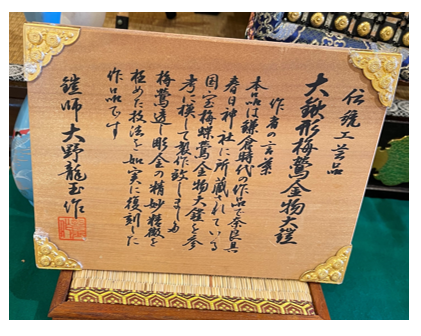 伝統工芸品
大鍬形梅鶯金物大鎧
作者の言葉
本品は鎌倉時代の作品で奈良県
春日神社に所蔵されている
国宝梅蝶鶯金物大鎧を参
考に模して製作致しました
梅鶯透し彫金の精妙精微を
極めた技法を如実に復刻した
作品です
鎧師大野龍玉作